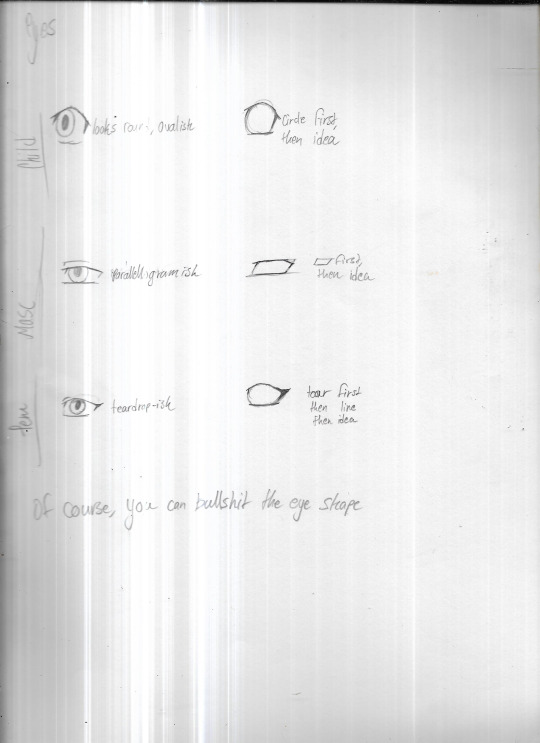 Eyes
Child
looks round, ovalish
Circle first,
then idea
Masc
parallelogramish
first,
then idea
fem
teardrop-ish
tear first
then line
then idea
Of course, you can bullshit the eye shape